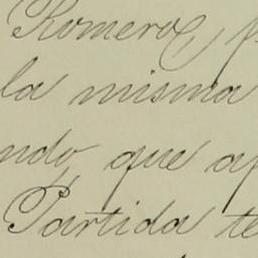 Romero, p
la misma
ndo, que ap
Partida te